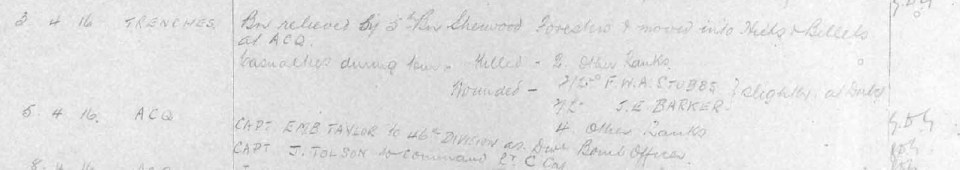 3. 4. 16 TRENCHES. Bn relieved by 5th Bn Sherwood Foresters & moved into Huts & Billets
at ACQ.
Casualties during tour - Killed - 2. Other Ranks.
Wounded - 2/Lt F.W.A. STUBBS } slightly at Duty
2/Lt J.E. BARKER.
4. Other Ranks
5. 4. 16. ACQ. CAPT E.M.B TAYLOR to 46th DIVISION as Divl Bomb Officer.
CAPT J. TOLSON to command C Coy
8. 4. 16